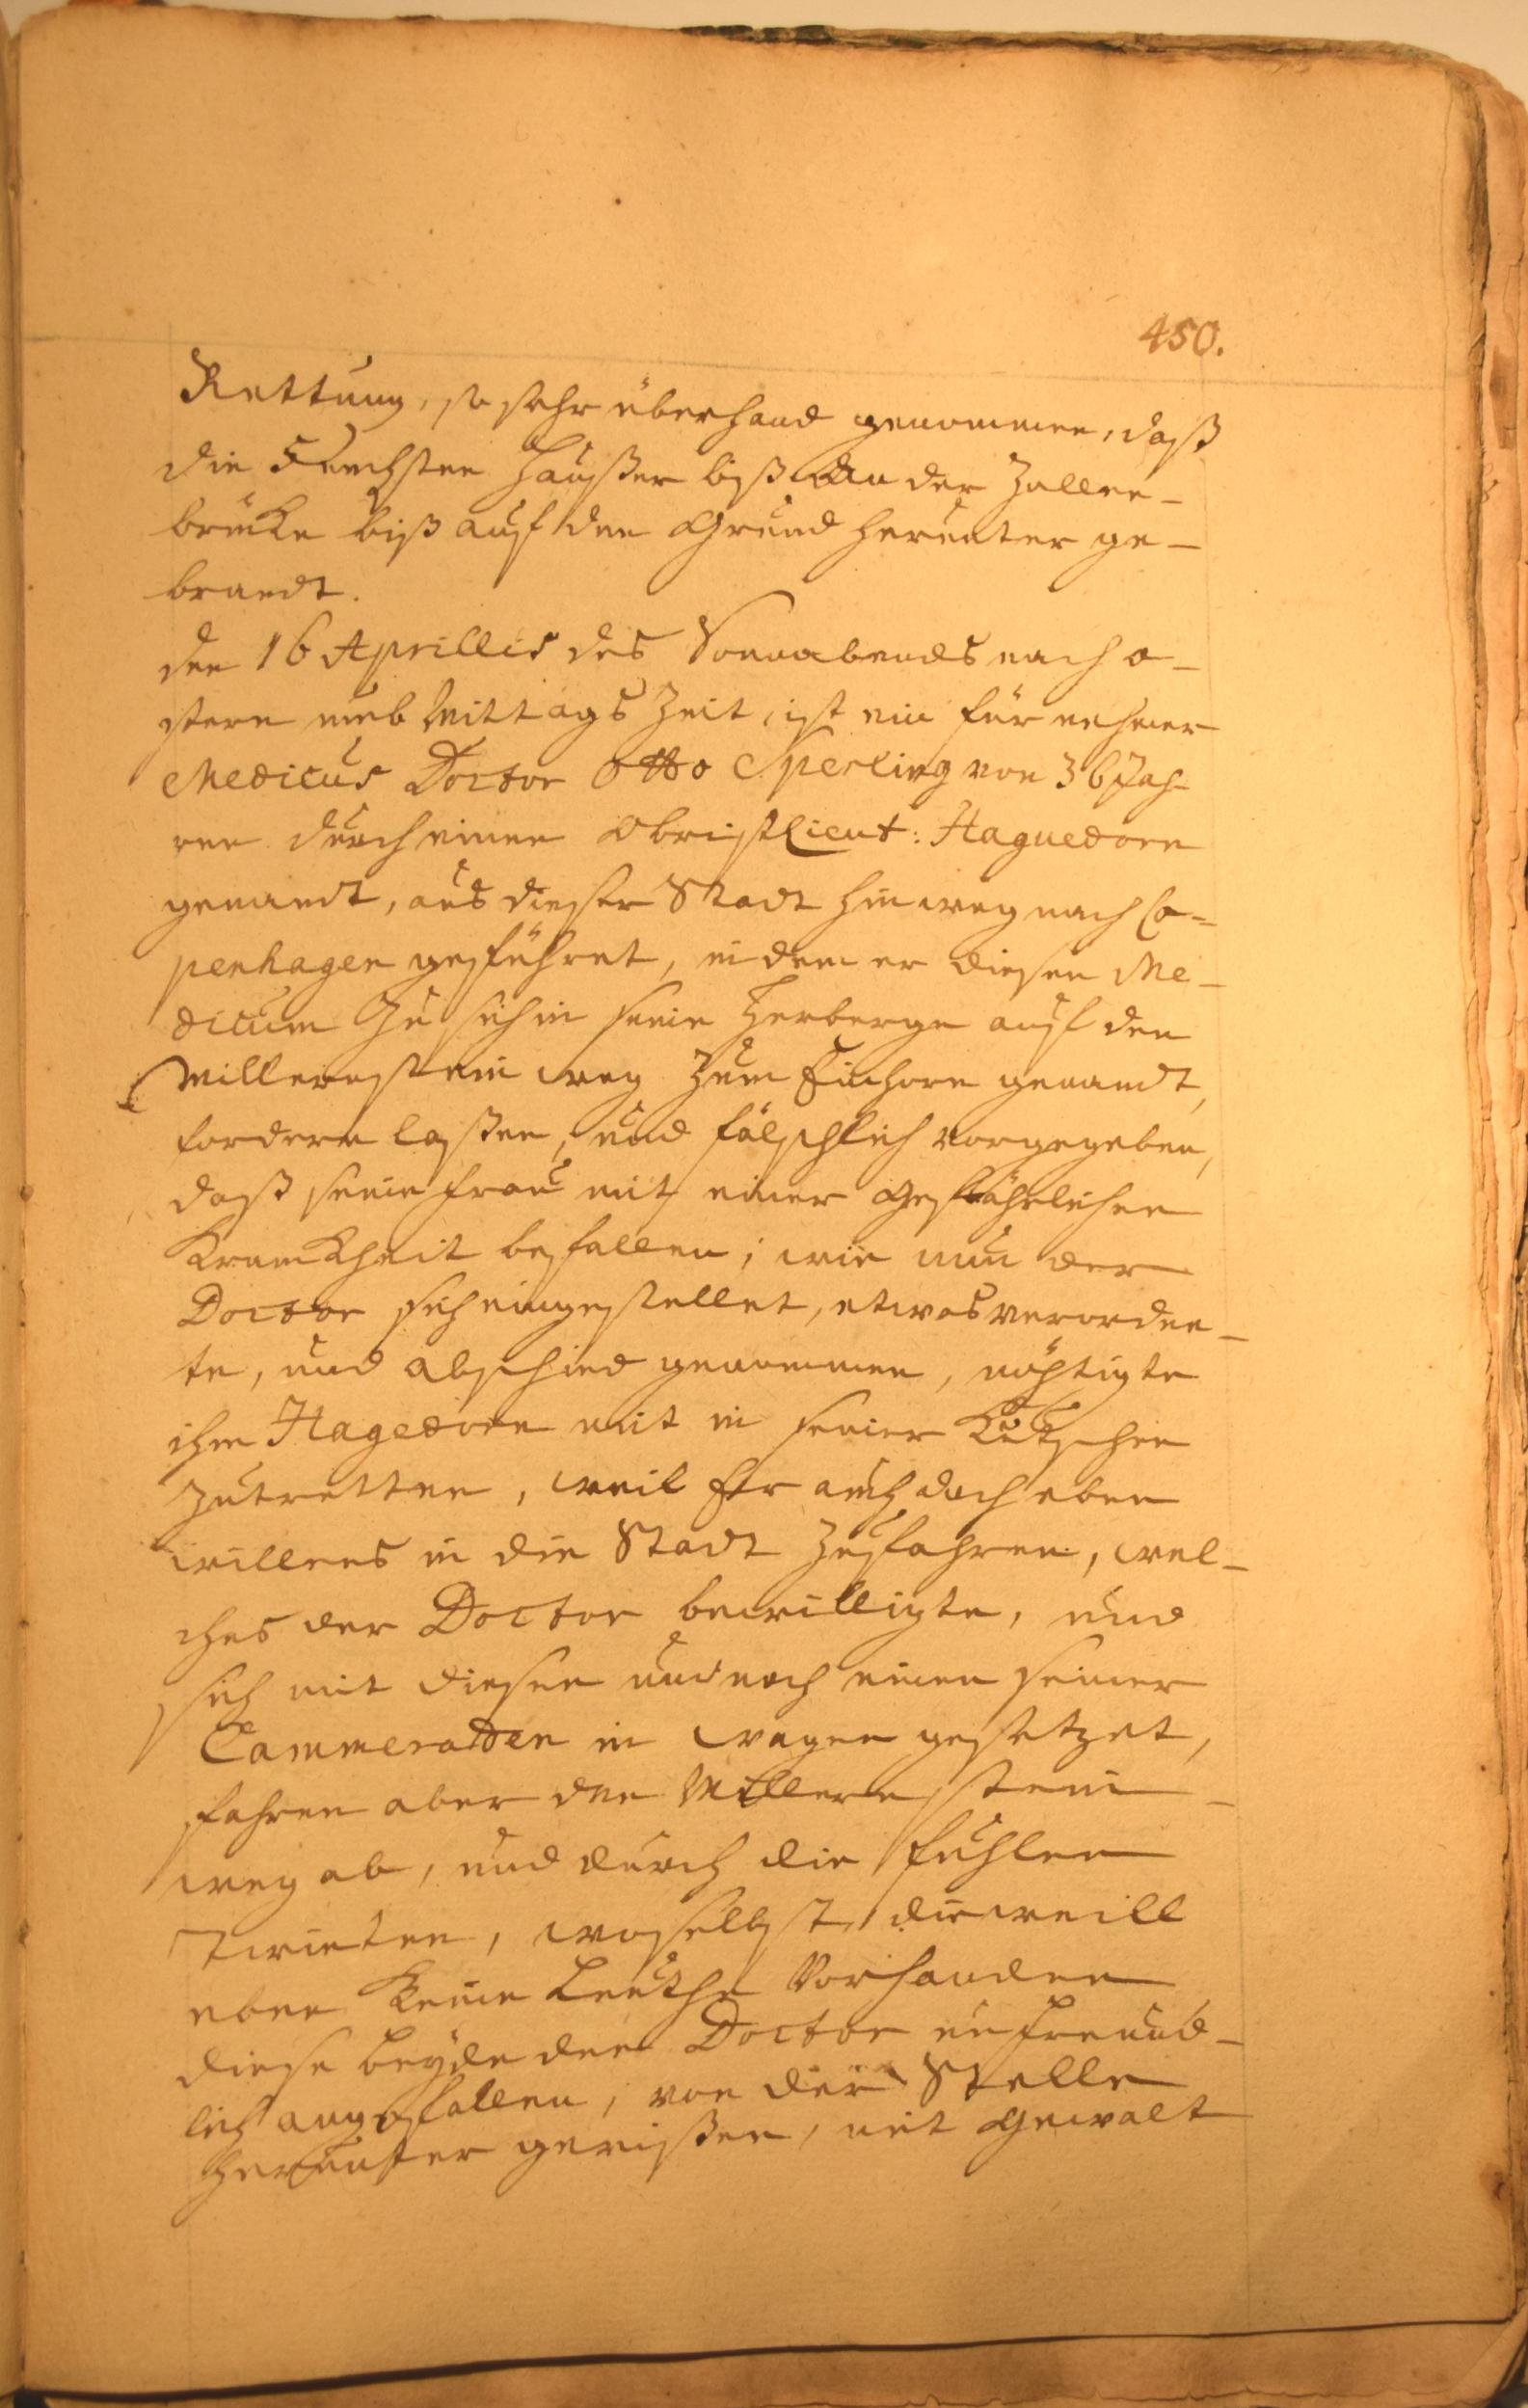 450.
Rettung, so sehr überhand genommen, daß
die 5 nechsten Häußer biß an der Zollen-
brücke biß auf den Grund herunter ge-
brandt.
den 16 Aprillis des Sonnabends nach o-
stern umb Mittags Zeit, ist ein für nehmer
Medicus Doctor Otto Sperling von 36 Jah-
ren durch einen ObristLieut: Haguedorn
genandt, aus dieser Stadt hinweg nach Co-
penhagen geführet, in dem er diesen Me-
dicum Zu sich in seine Herberge auf den
Millernstein weg Zum Einhorn genandt,
fordern laßen, und fälschlich vorgegeben,
daß seine Frau mit einer gefährlichen
Kranckheit befallen; wie nun der
Doctor sich eingestellet, etwas verordne-
te, und abschied genommen, nöhtigte
ihm Hagedorn mit in seiner Kutschen
Zutretten, weil Er auch doch eben
willens in die Stadt Zufahren, wel-
ches der Doctor bewilligte, und
sich mit diesen und noch einen seiner
Cammeratten in wagen gesetzet,
fahren aber den Millern stein-
weg ab, und durch die fuhlen
Twieten, woselbst, dieweill
eben keine Leuthe vorhanden
diese beyde den Doctor unfreund-
lich angefallen, von der Stelle
herunter gerißen, mit Gewalt